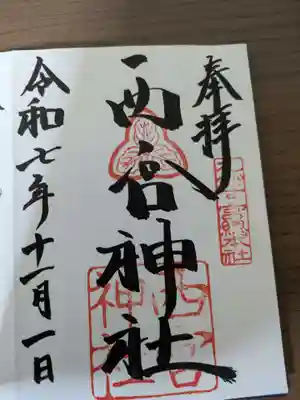 奉拝
西宮神社
西宮
神社
令和七年十一月一日